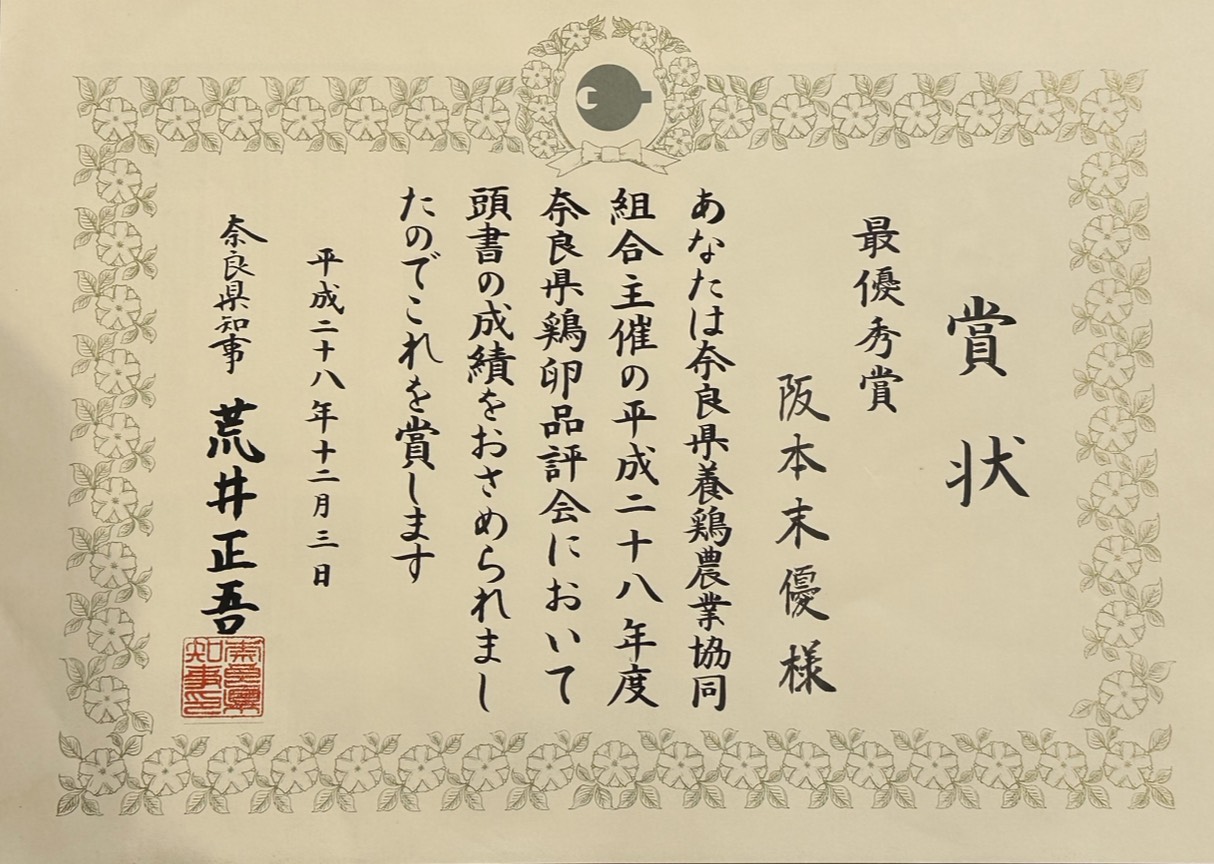 賞状
最優秀賞
阪本末優様
あなたは奈良県養鶏農業協同
組合主催の平成二十八年度
奈良県鶏卵品評会において
頭書の成績をおさめられまし
たのでこれを賞します
平成二十八年十二月三日
奈良県知事 荒井正吾
奈良県
知事之印